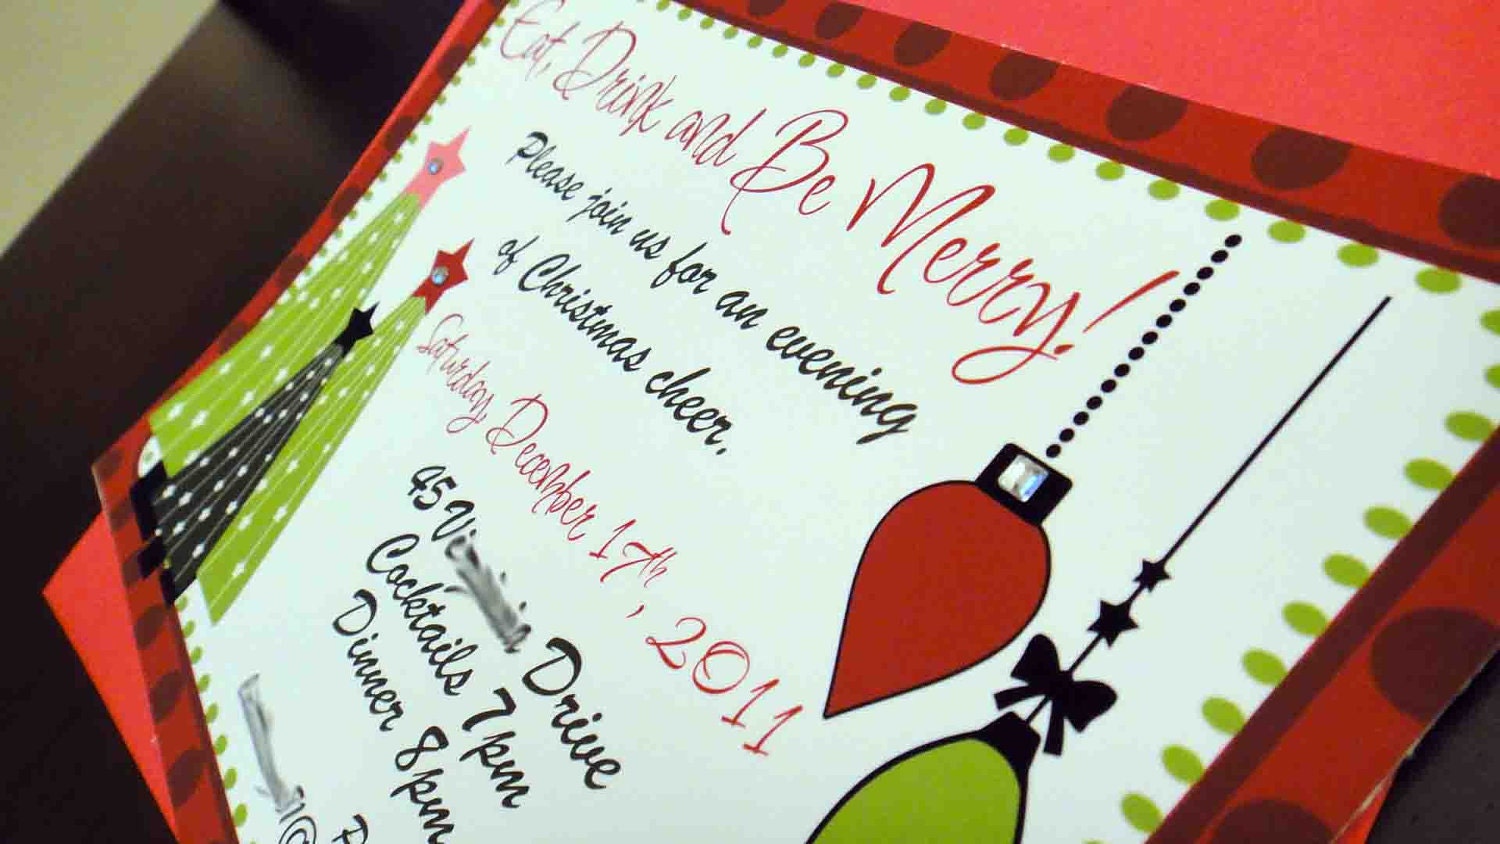 Eat, Drink and Be Merry!
Please join us for an evening
of Christmas cheer.
Saturday, December 17th, 2011
45 Drive
Cocktails 7pm
Dinner 8pm